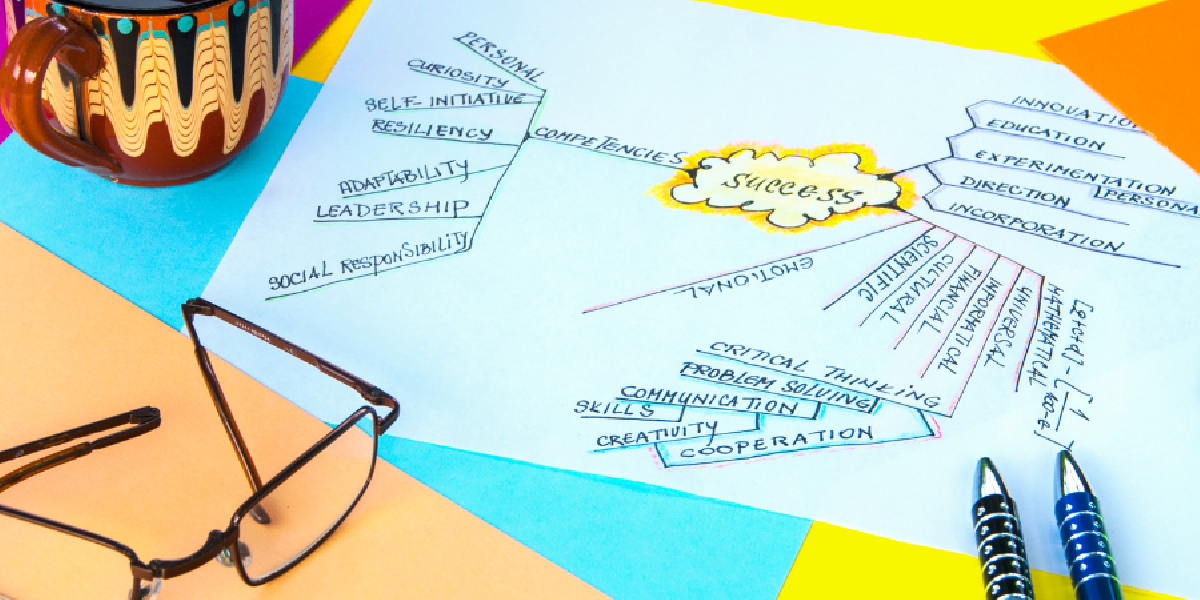 PERSONAL
CURIOSITY
SELF-INITIATIVE
RESILIENCY
COMPETENCIES
ADAPTABILITY
LEADERSHIP
SOCIAL RESPONSIBILITY
SUCCESS
INNOVATIO
EDUCATION
EXPERIMENTATION
DIRECTION
PERSONA
INCORPORATION
EMOTIONAL
SCIENTIFIC
CULTURAL
FINANCIAL
INFORMATICAL
UNIVERSAL
MATHEMATICAL
CRITICAL THINKING
PROBLEM SOLVING
COMMUNICATION
SKILLS
CREATIVITY
COOPERATION